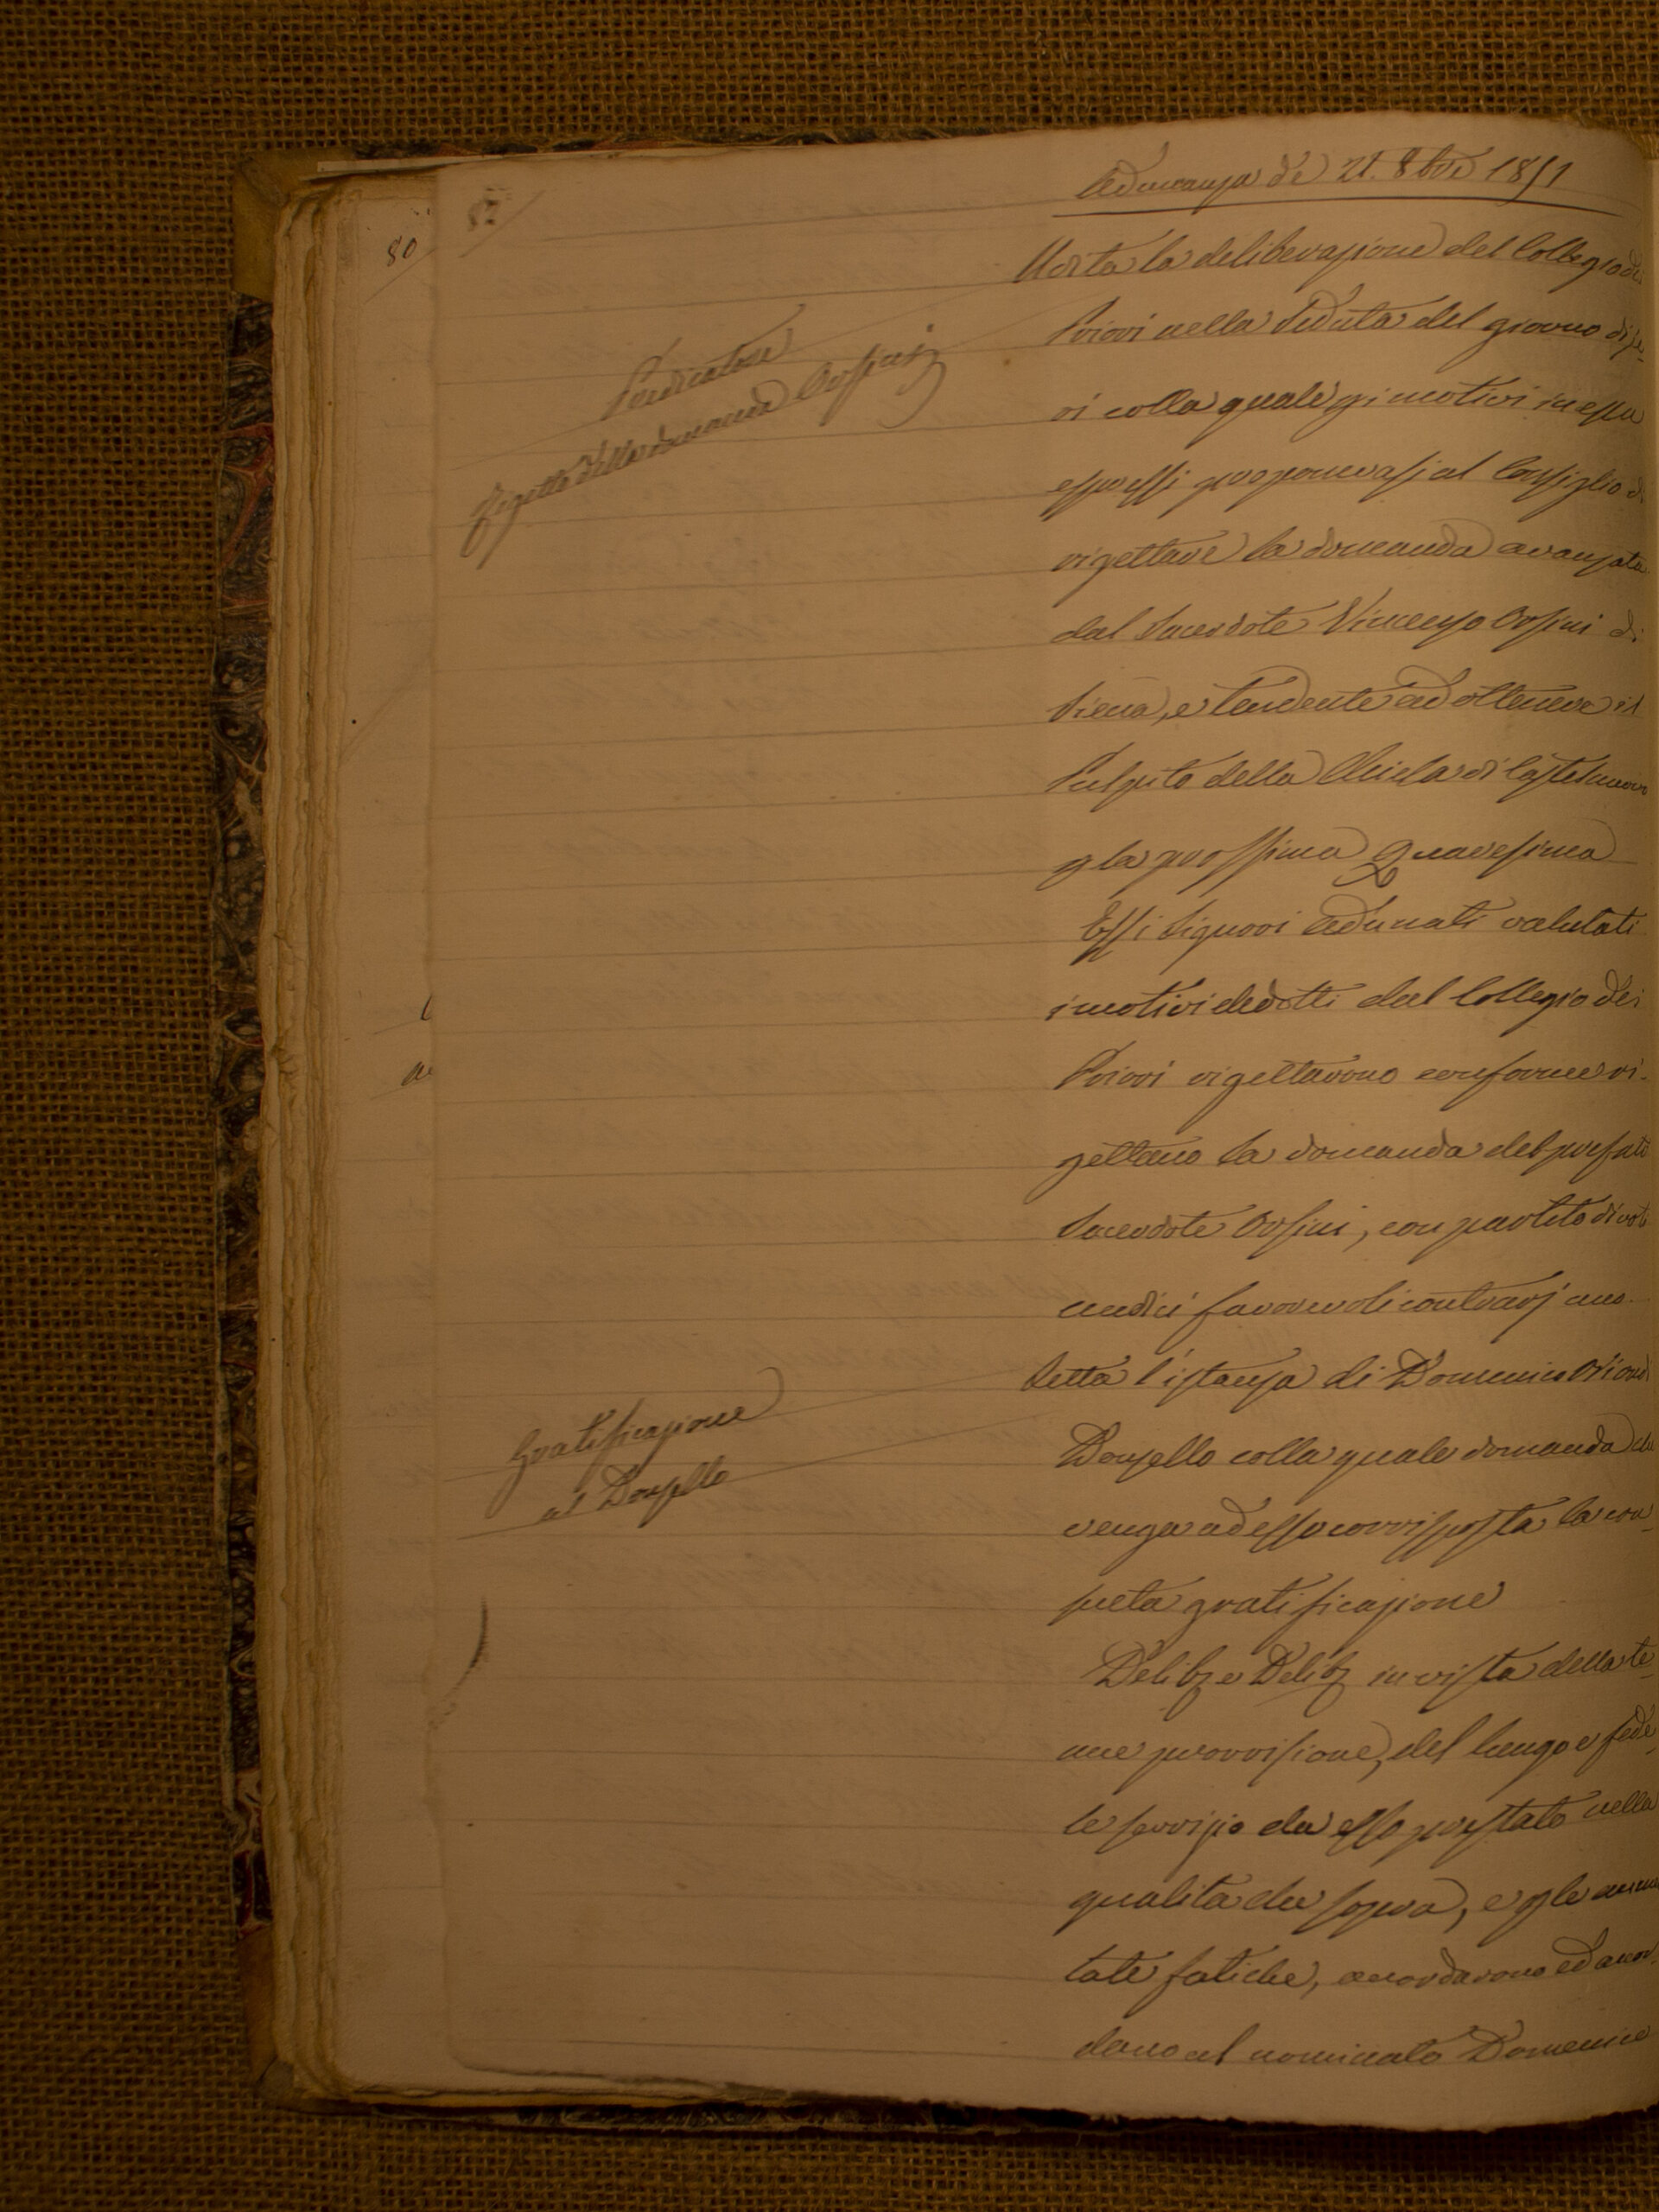 80
82
Adunanza de' 21. 8bre 1851
Udita la deliberazione del Collegio dei
Priori nella Seduta del giorno di je-
ri colla quale pi motivi in essa
espressi proponevasi al Consiglio di
rigettare la domanda avanzata
dal Sacerdote Vincenzo Orsini di
Siena, e tendente ad ottenere il
Pulpito della Chiesa di Castelnuovo
p la prossima Quaresima
Predicatore
Rigetto della domanda Orsini
Essi Signori Adunati valutati
i motivi dedotti dal Collegio dei
Priori rigettarono conforme ri-
gettano la domanda del prefato
Sacerdote Orsini, con partito di voti
undici favorevoli contrarj uno.
Gratificazione
al Donzello
Letta l'istanza di Domenico
Donzello colla quale domanda che
venga ad esso corrisposta la con-
sueta gratificazione
Delib e Delib in vista della te-
nue provvisione, del lungo e fede-
le servizio da esso prestato nella
qualità di sopra, e p le aumen
tate fatiche, accordarono ed accor-
dano al nominato Domenico